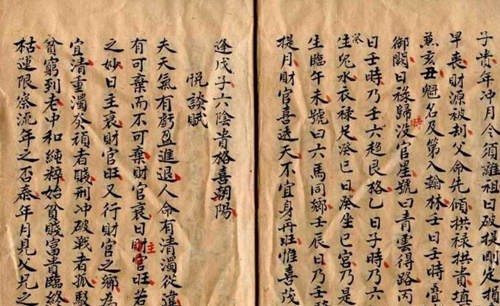 子貴年冲月令須離祖日破提剛定損
早喪財源被刦父命先傾拱祿拱貴填
兼亥丑魁名及第入翰林壬日壬時
御闕日祿歸時沒官星號曰青雲得路
日壬時乃壬六趨艮格乙日子時乃
生水衣祿足癸巳日癸坐巳宮乃是
生臨午未號曰六馬同鄉壬辰日乃壬
提月財官喜透天不宜身再旺惟喜茂
逐戊子六陰貴格喜朝陽
悅談賦
夫天氣有虧盈進退人命有清濁從違
有可棄而不可棄財官衰曰主財官旺若
之妙曰主衰財官旺又行財官之鄉為
宜清重濁頑者賤刑冲破戰者孤
貧窮到老中和純粹始貧賤富貴臨終
枯運限察流年之否泰年月見父兄之